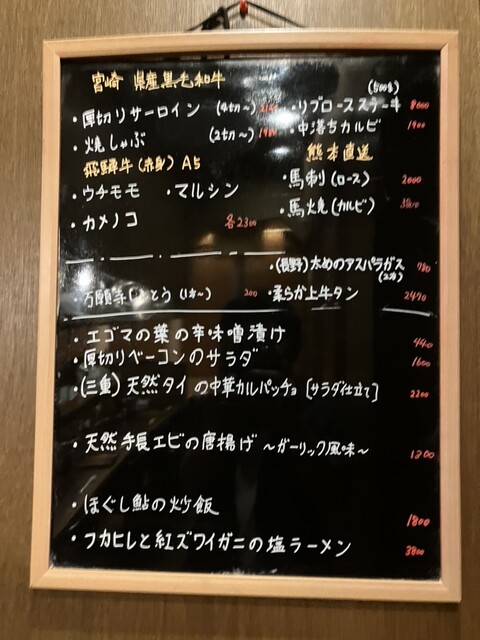 宮崎 県産黒毛和牛
・厚切りサーロイン (4切〜)
・焼しゃぶ (2切〜)
(500g)
・リブロースステーキ 8000
・中落ちカルビ 1900
飛騨牛(赤身) A5
・ウチモモ ・マルシン
・カメノコ 各2300
熊本直送
・馬刺(ロース) 2000
・馬焼(カルビ)
・(長野)太めのアスパラガス 780
・万願寺とうがらし(1本〜) 200
・柔らか上牛タン 2470
・エゴマの葉の辛味噌漬け 440
・厚切りベーコンのサラダ 1600
・(三重)天然タイの中華カルパッチョ [サラダ仕立て] 2200
・天然手長エビの唐揚げ 〜ガーリック風味〜 1200
・ほぐし鮎の炒飯 1800
・フカヒレと紅ズワイガニの塩ラーメン 3800